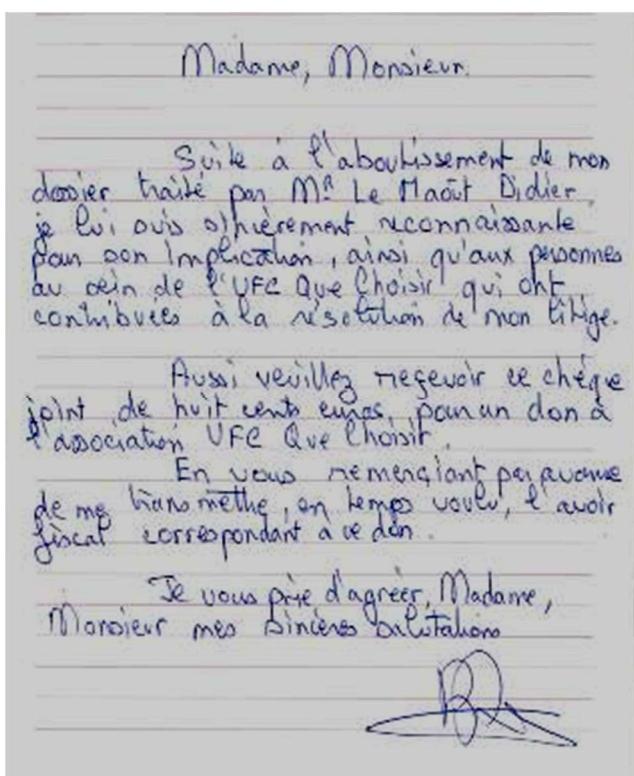 Madame, Monsieur.
Suite à l'aboutissement de mon
dossier traité par Mr Le Maoût Didier,
je lui suis sincèrement reconnaissante
pour son implication, ainsi qu'aux personnes
au sein de l'UFC Que Choisir qui ont
contribuées à la résolution de mon litige.
Aussi veuillez recevoir ce chèque
joint, de huit cents euros, pour un don à
l'association UFC Que Choisir.
En vous remerciant par avance
de me transmettre, en temps voulu, l'avoir
fiscal correspondant à ce don.
Je vous prie d'agréer, Madame,
Monsieur mes sincères salutations